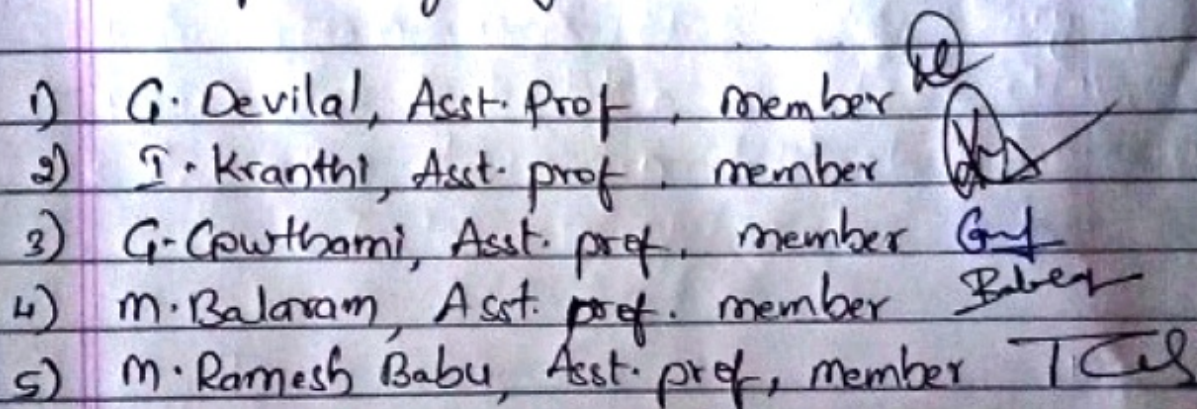 1) G. Devilal, Asst. Prof, member
2) I. Kranthi, Asst. prof, member
3) G. Gowthami, Asst. prof, member
4) M. Balaram, Asst. prof. member
5) M. Ramesh Babu, Asst. prof, member